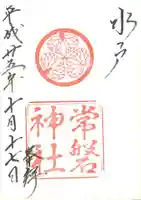 水戸
常磐
神社
平成廿五年十月十七日